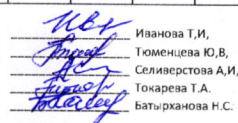 Иванова Т,И,
Тюменцева Ю,В,
Селиверстова А,И,
Токарева Т.А.
Батырханова Н.С.